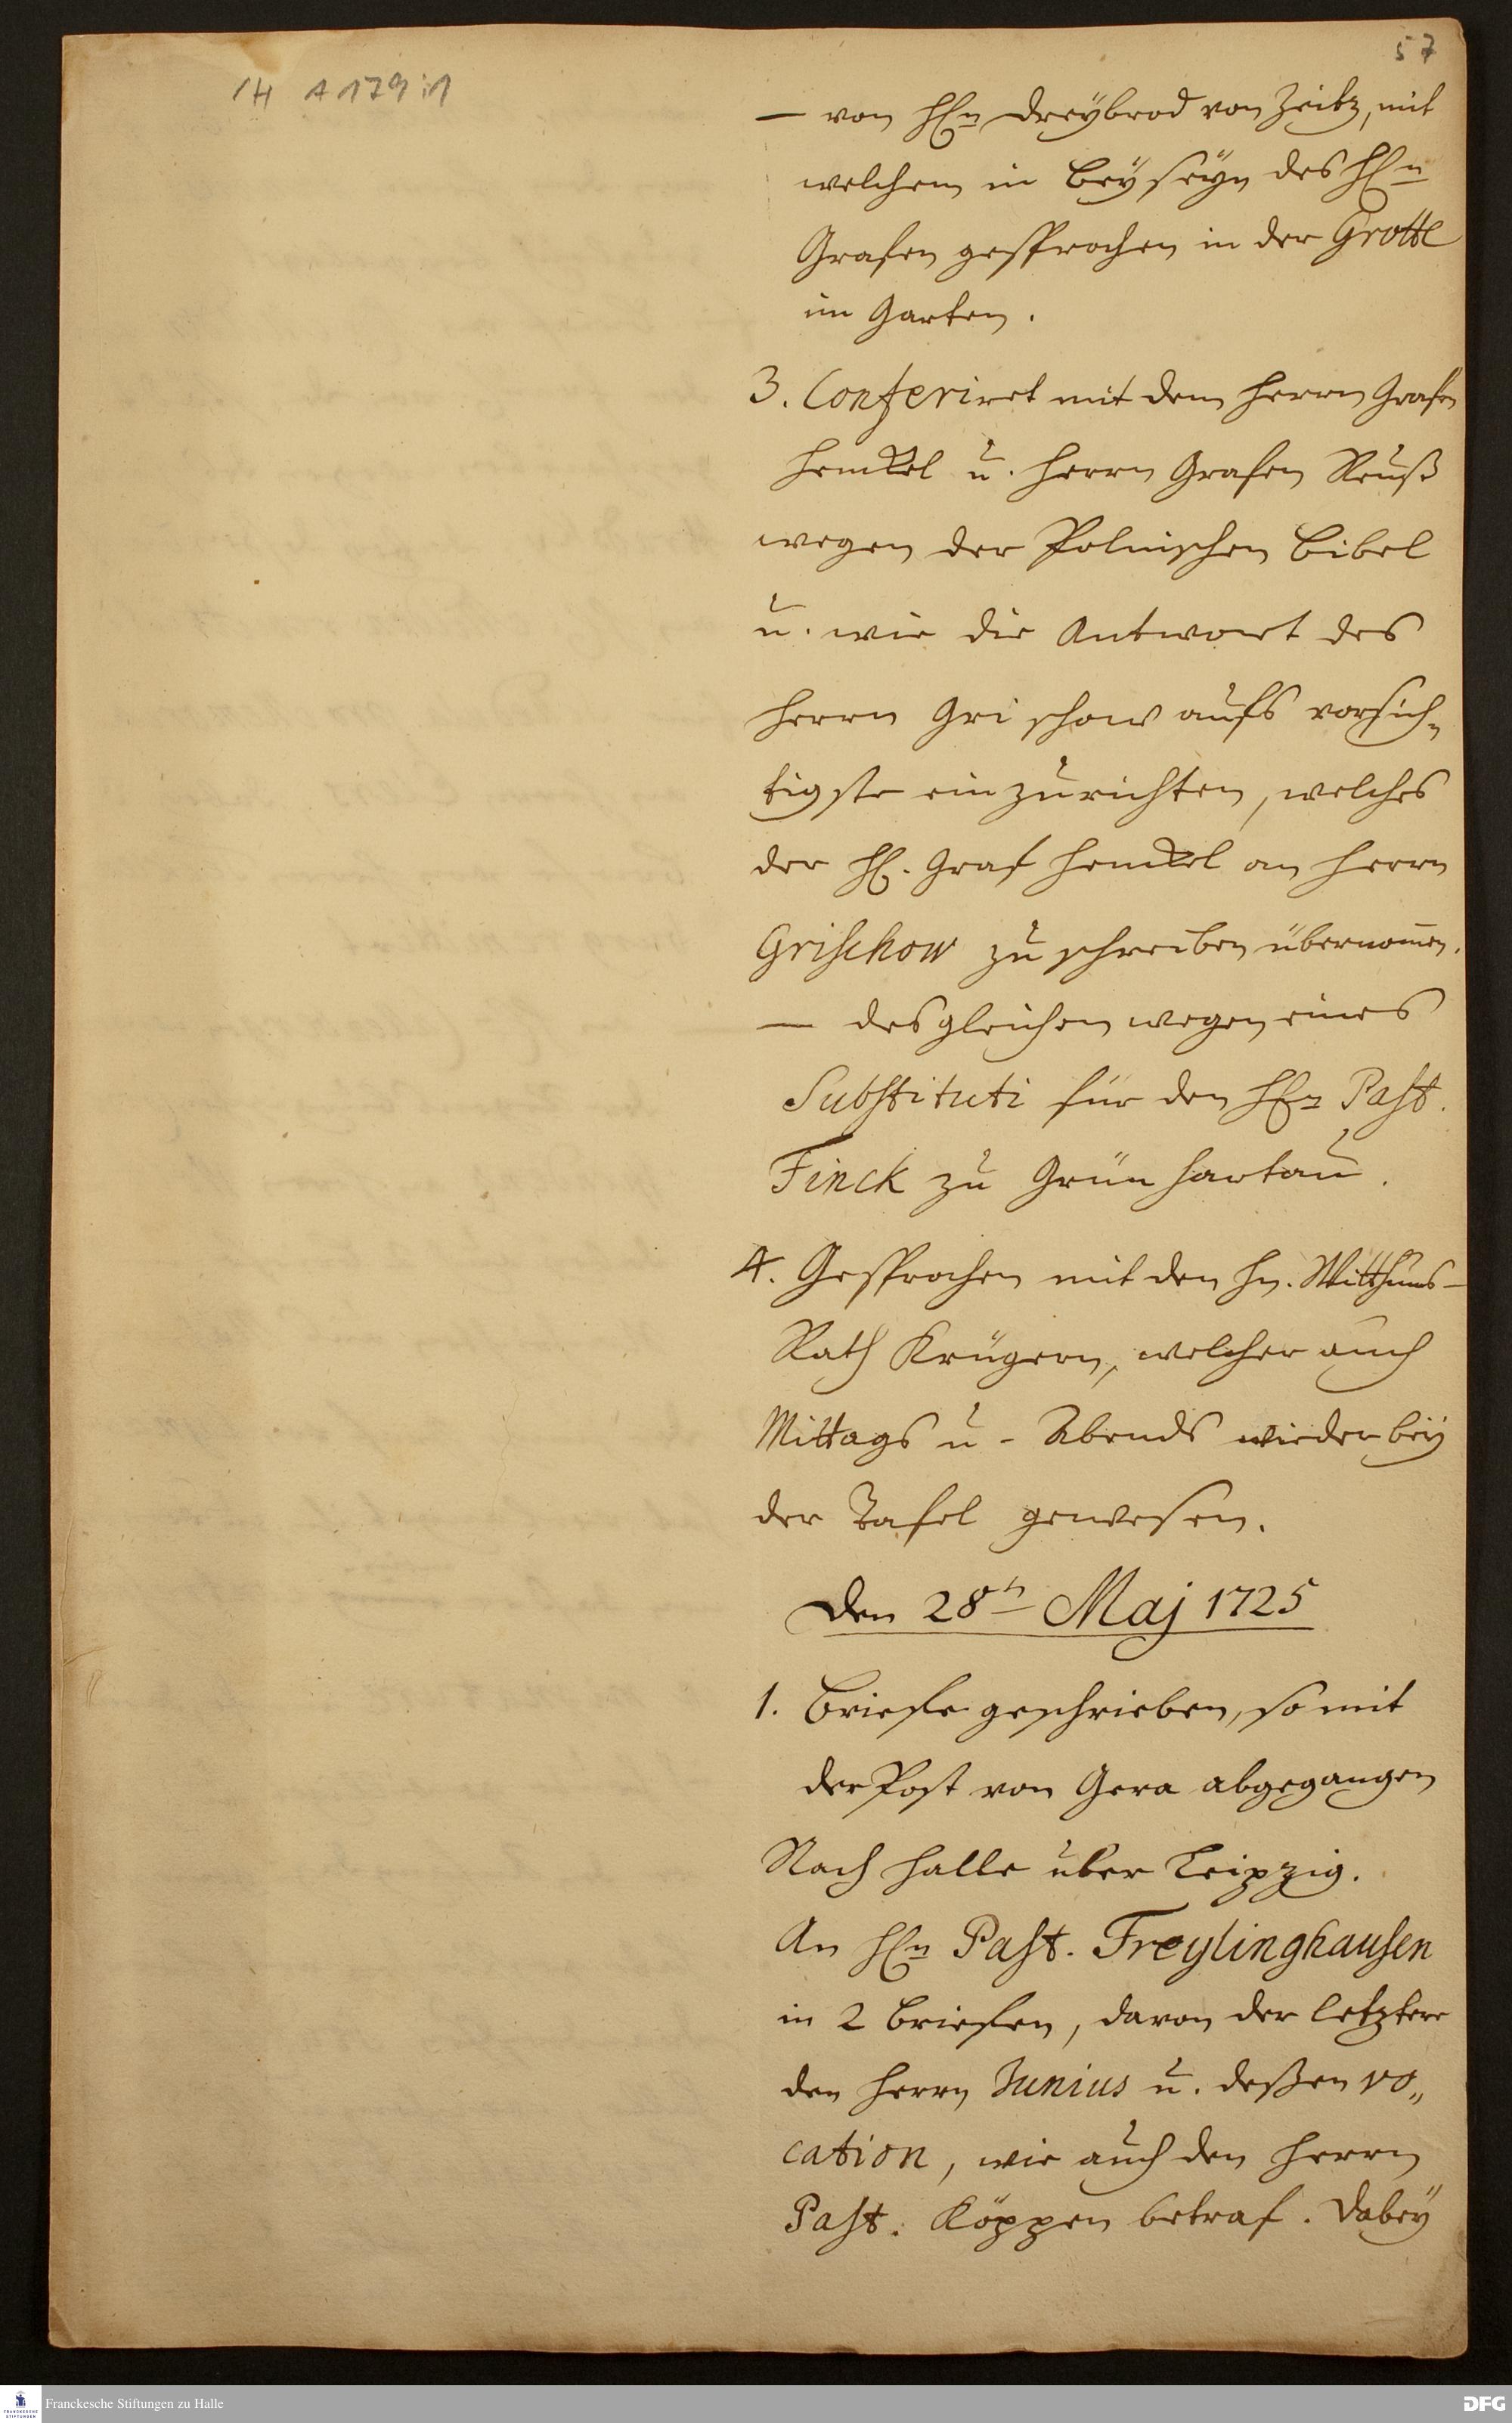 57
1H A 179:1
— von HEn Dreÿbrod von Zeitz, mit
welchem in beÿseÿn des HEn
Grafen gesprochen in der Grotte
im Garten.
3. Conferiret mit dem Herrn Grafen
Henckel u. Herrn Grafen Reuß
wegen der Polnischen Bibel
u. wie die Antwort des
Herrn Grischow aufs vorsich-
tigste einzurichten, welches
der HE. Graf Henckel an Herrn
Grischow zu schreiben übernom̅en.
— desgleichen wegen eines
Substituti für den HEn Past.
Finck zu Grünhartau.
4. Gesprochen mit den Hn. Witthums-
Rath Krügern, welcher auch
Mittags u. Abends wieder beÿ
der Tafel gewesen.
Den 28ten Maj 1725
1. Briefe geschrieben, so mit
der Post von Gera abgegangen
Nach Halle über Leipzig.
An HEn Past. Freylinghausen
in 2 Briefen, davon der letztere
den Herrn Junius u. deßen vo„
cation, wie auch den Herrn
Past. Köppen betraf. Dabeÿ
Franckesche Stiftungen zu Halle
DFG